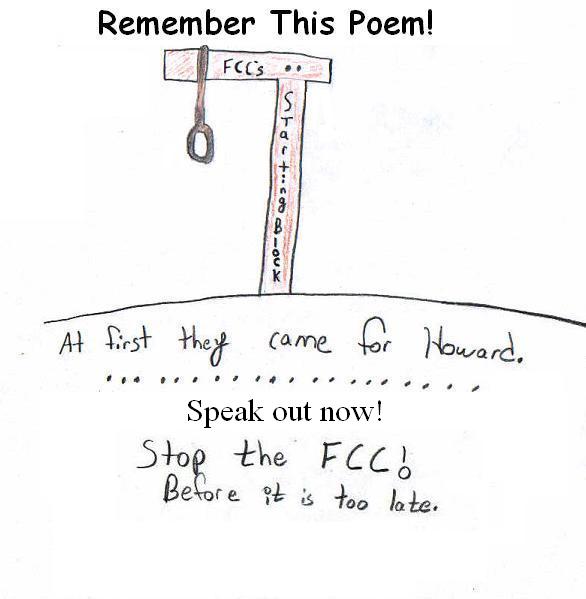 Remember This Poem!
FCC's
Starting Block
At first they came for Howard.
....................
Speak out now!
Stop the FCC!
Before it is too late.